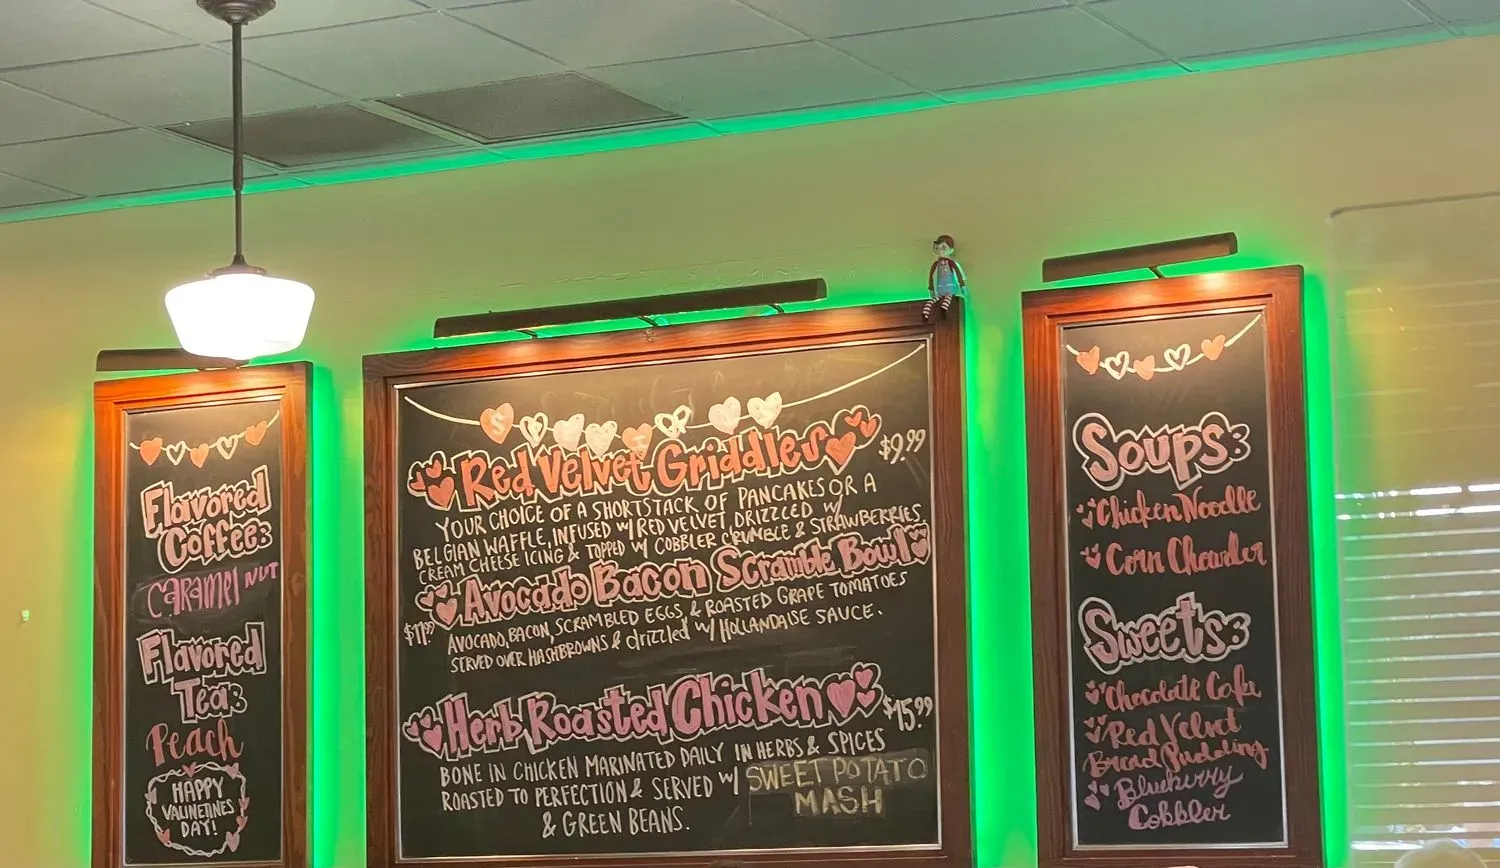 Flavored
Coffee:
Caramel Nut
Flavored
Tea:
Peach
HAPPY
VALINETINES
DAY!
Red Velvet Griddler $9.99
YOUR CHOICE OF A SHORTSTACK OF PANCAKES OR A
BELGIAN WAFFLE, INFUSED W/ RED VELVET, DRIZZLED W/
CREAM CHEESE ICING & TOPPED W/ COBBLER CRUMBLE & STRAWBERRIES
Avocado Bacon Scramble Bowl
$11.99 AVOCADO, BACON, SCRAMBLED EGGS, & ROASTED GRAPE TOMATOES
SERVED OVER HASHBROWNS & drizzled W/ HOLLANDAISE SAUCE.
Herb Roasted Chicken $15.99
BONE IN CHICKEN MARINATED DAILY IN HERBS & SPICES
ROASTED TO PERFECTION & SERVED W/ SWEET POTATO
MASH
& GREEN BEANS.
Soups:
Chicken Noodle
Corn Chowder
Sweets:
Chocolate Cake
Red Velvet
Bread Pudding
Blueberry
Cobbler